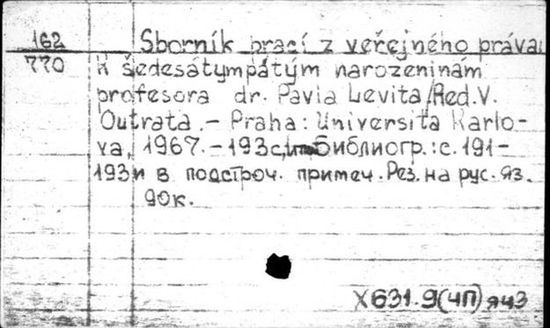 162 Sborník prací z veřejného práva
770 K šedesátympátým narozeninám
profesora dr. Pavla Levita/Red. V.
Outrata. - Praha: Universita Karlo-
va, 1967. - 193 с, Библиогр.: с. 191-
193 и в подстроч. примеч. Рез. на рус. яз.
90к.
X631.9(4П)я43